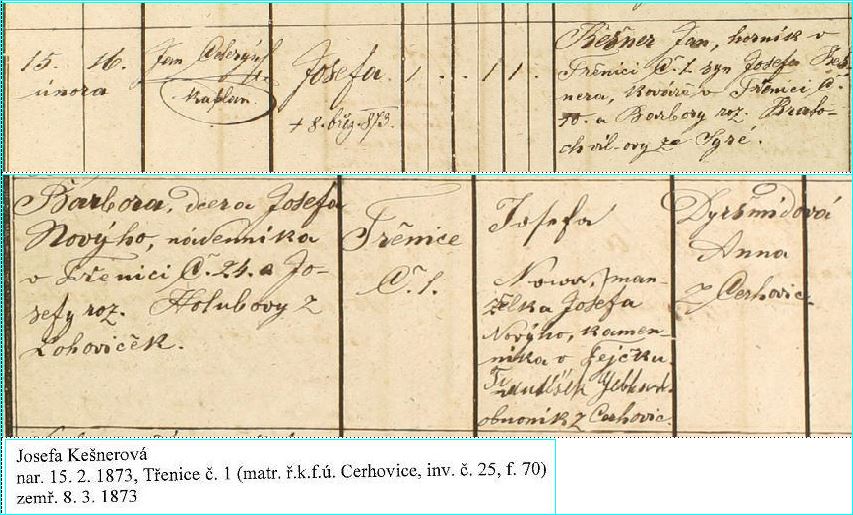 15. 16.
února
Jan
kaplan.
Josefa.
+ 8. břez. 873.
1 . . . 1 1 .
Kešner Jan, horník v
Třenici Č. 1. syn Josefa Keš-
nera, kováře v Třenici Č.
10. a Barbory roz. Brabo-
ze Syré.
Barbora, dcera Josefa
Novýho, nádenníka
v Třenici Č. 24. a Jo-
sefy roz. Holubovy z
Lohoviček.
Třenice
Č. 1.
Josefa
Nowa, man-
želka Josefa
Novýho, kamen-
níka v
František
obuvník z Cerhovic.
Dyršmidová
Anna
z Cerhovic.
Josefa Kešnerová
nar. 15. 2. 1873, Třenice č. 1 (matr. ř.k.f.ú. Cerhovice, inv. č. 25, f. 70)
zemř. 8. 3. 1873